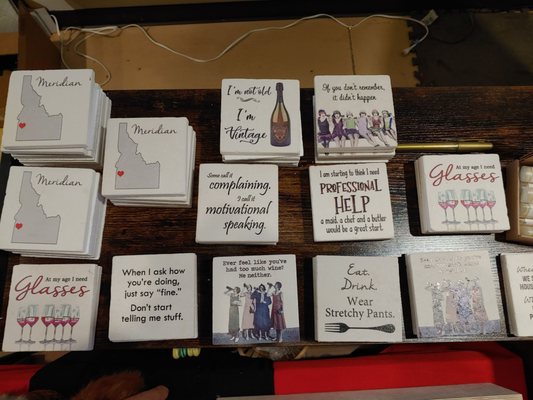 Meridian
I'm not old
I'm
Vintage
If you don't remember,
it didn't happen
Meridian
Meridian
Some call it
complaining.
I call it
motivational
speaking.
I am starting to think I need
PROFESSIONAL
HELP
a maid, a chef and a butler
would be a great start.
At my age I need
Glasses
At my age I need
Glasses
When I ask how
you're doing,
just say "fine."
Don't start
telling me stuff.
Ever feel like you've
had too much wine?
Me neither.
Eat.
Drink.
Wear
Stretchy Pants.